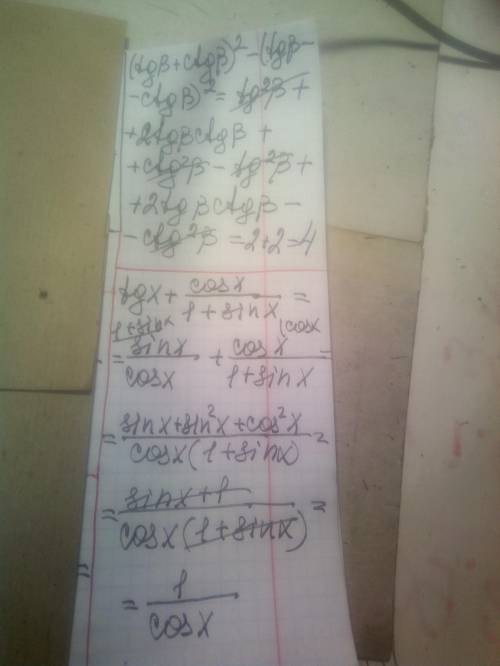 (tgβ+ctgβ)²-(tgβ-
-ctgβ)²=tg²β+
+2tgβctgβ+
+ctg²β-tg²β+
+2tgβctgβ-
-ctg²β=2+2=4
tgx+cosx/(1+sinx)=
=(1+sinx sinx)/cosx+(cosx cosx)/(1+sinx)=
=(sinx+sin²x+cos²x)/(cosx(1+sinx))=
=(sinx+1)/(cosx(1+sinx))=
=
=1/cosx